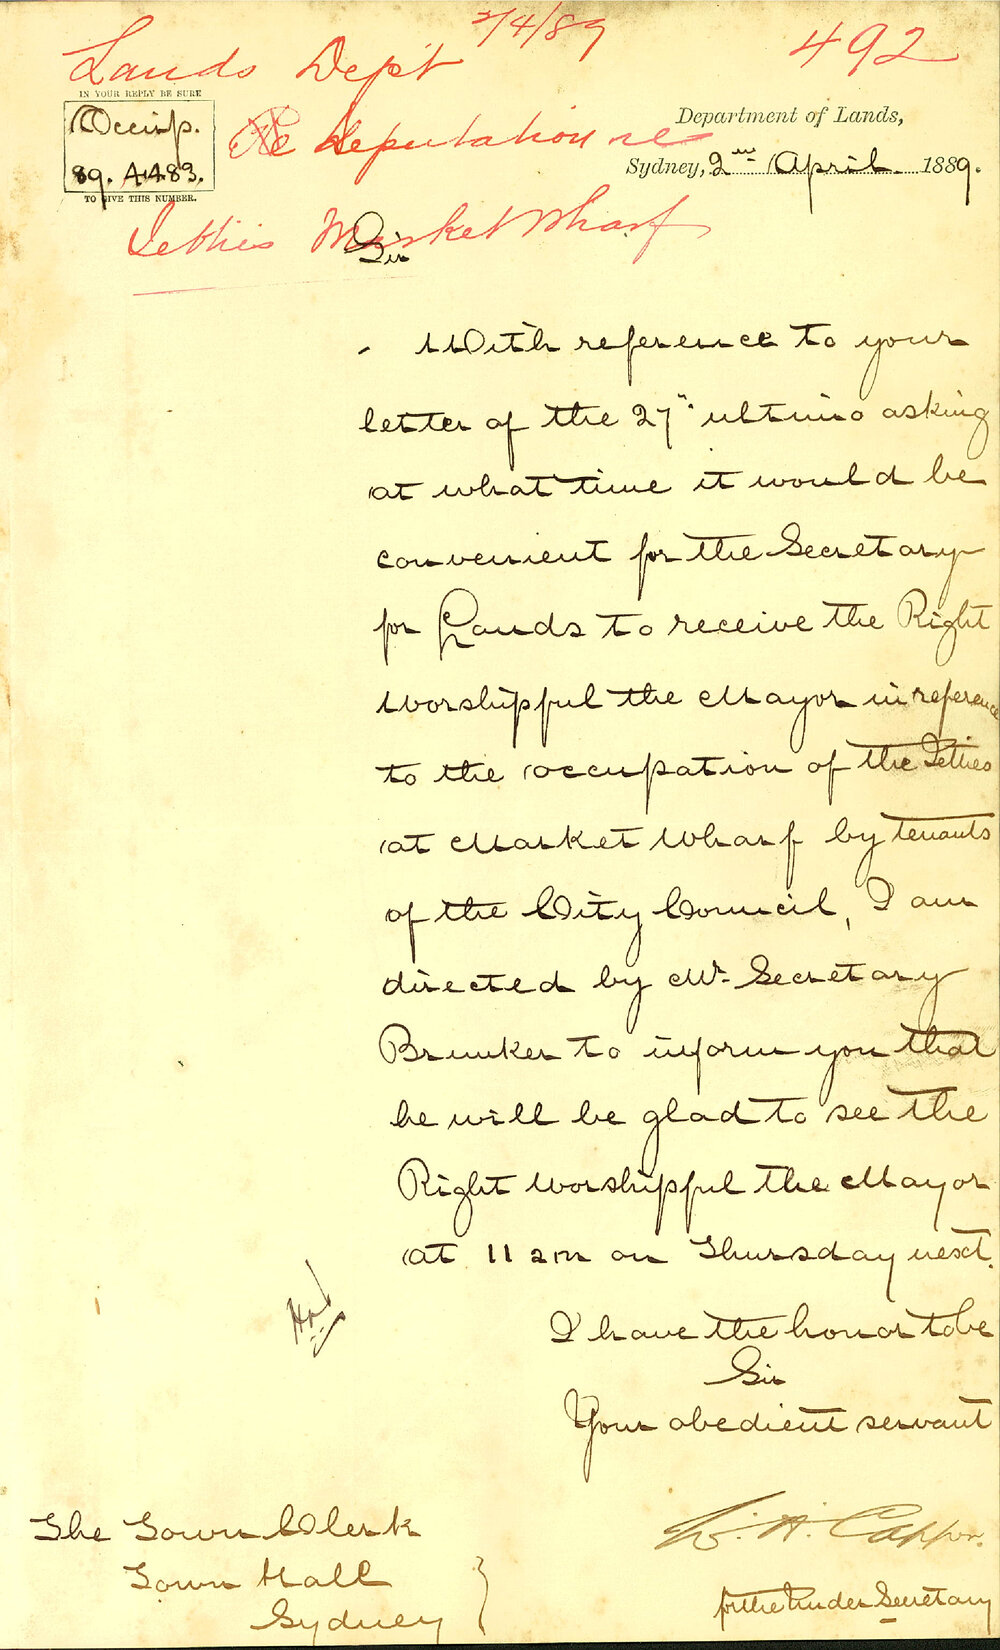 2/4/89
Lands Dept 492
IN YOUR REPLY BE SURE
Occup.
89. 4483.
TO GIVE THIS NUMBER.
Re Deputation re
Jetties Market Wharf
Department of Lands,
Sydney, 2nd April 1889.
Sir
With reference to your
letter of the 27" ultimo asking
at what time it would be
convenient for the Secretary
for Lands to receive the Right
Worshipful the Mayor in reference
to the occupation of the Jetties
at Market Wharf by tenants
of the City Council, I am
directed by Mr. Secretary
Brunker to inform you that
he will be glad to see the
Right Worshipful the Mayor
at 11 am on Thursday next.
I have the honor to be
Sir
Your obedient servant
W. H. Capper.
for the Under Secretary
The Town Clerk
Town Hall
Sydney